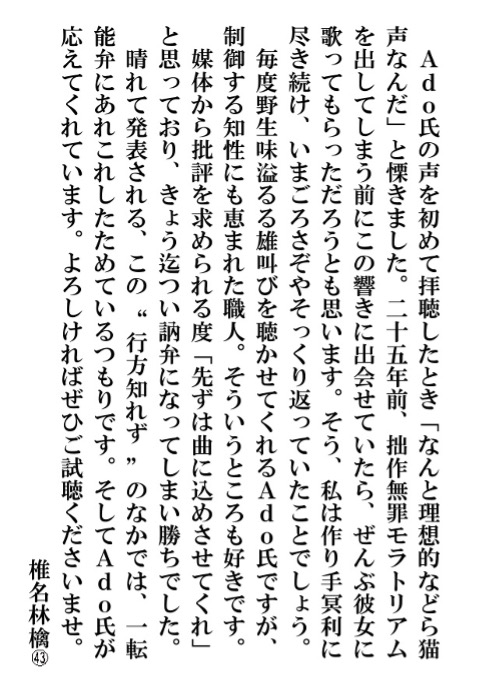 Ado氏の声を初めて拝聴したとき「なんと理想的などら猫
声なんだ」と慄きました。二十五年前、拙作無罪モラトリアム
を出してしまう前にこの響きに出会せていたら、ぜんぶ彼女に
歌ってもらっただろうとも思います。そう、私は作り手冥利に
尽き続け、いまごろさぞやそっくり返っていたことでしょう。
毎度野生味溢るる雄叫びを聴かせてくれるAdo氏ですが、
制御する知性にも恵まれた職人。そういうところも好きです。
媒体から批評を求められる度「先ずは曲に込めさせてくれ」
と思っており、きょう迄つい訥弁になってしまい勝ちでした。
晴れて発表される、この“行方知れず”のなかでは、一転
能弁にあれこれしたためているつもりです。そしてAdo氏が
応えてくれています。よろしければぜひご試聴くださいませ。
椎名林檎㊸